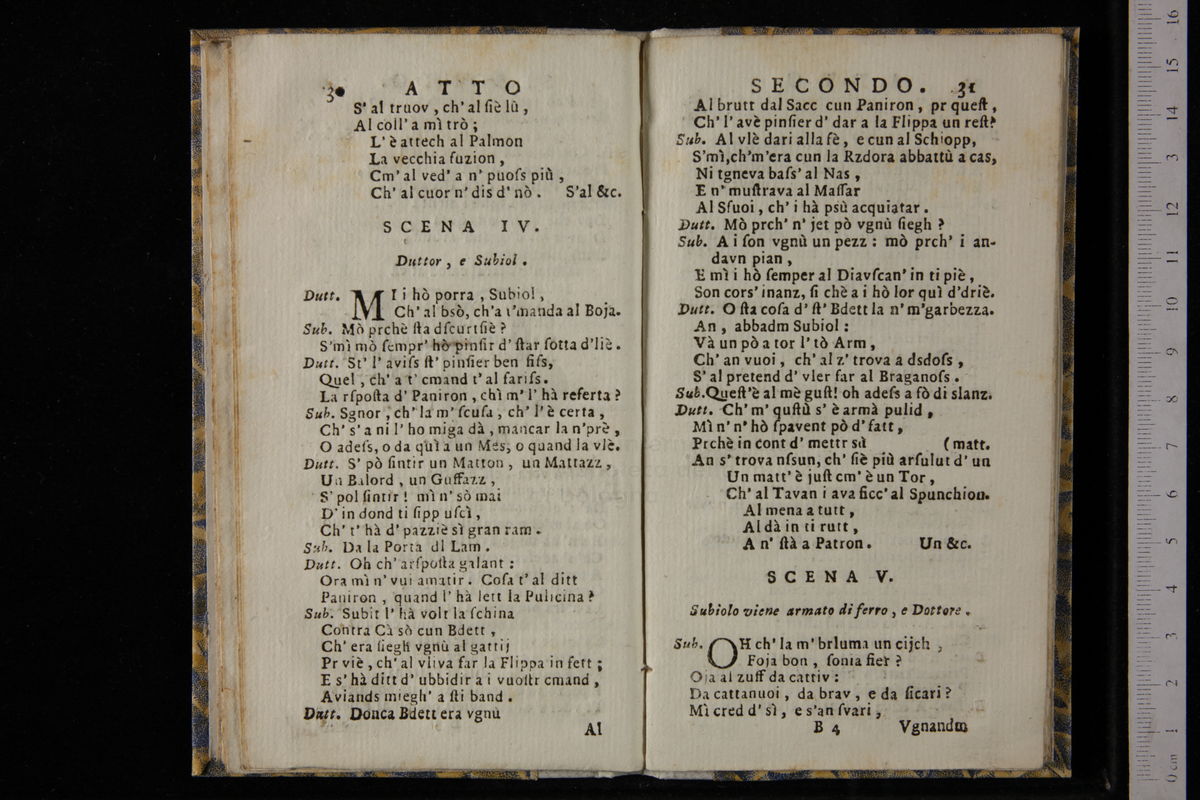 30 ATTO
S' al truov, ch' al ſiè lù,
Al coll' a mì trò;
L' è attech al Palmon
La vecchia fuzion,
Cm' al ved' a n' puoſs più,
Ch' al cuor n' dis d' nò. S'al &c.
SCENA IV.
Duttor, e Subiol.
Dutt. MI i hò porra, Subiol,
Ch' al bsò, ch'a t'manda al Boja.
Sub. Mò prchè ſta dſcurtſiè?
S'mì mò ſempr' hò pinſir d' ſtar ſotta d'liè.
Dutt. St' l' aviſs ſt' pinſier ben fiſs,
Quel, ch' a t' cmand t' al fariſs.
La rſpoſta d' Paniron, chì m' l' hà referta?
Sub. Sgnor, ch' la m' ſcuſa, ch' l' è certa,
Ch' s' a ni l' ho miga dà, mancar la n'prè,
O adeſs, o da quì a un Mes, o quand la vlè.
Dutt. S' pò ſintir un Matton, un Mattazz,
Un Balord, un Guffazz,
S' pol ſintir! mì n' sò mai
D' in dond ti ſipp uſcì,
Ch' t' hà d' pazziè sì gran ram.
Sub. Da la Porta dl Lam.
Dutt. Oh ch' arſpoſta galant:
Ora mì n' vui amatir. Coſa t' al ditt
Paniron, quand l' hà lett la Pulicina?
Sub. Subit l' hà volt la ſchina
Contra Cà sò cun Bdett,
Ch' era ſiegh vgnù al gattij
Pr viè, ch' al vliva far la Flippa in fett;
E s' hà ditt d' ubbidir a i vuoſtr cmand,
Aviands miegh' a ſti band.
Dutt. Donca Bdett era vgnù
Al
SECONDO. 31
Al brutt dal Sacc cun Paniron, pr queſt,
Ch' l' avè pinſier d' dar a la Flippa un reſt?
Sub. Al vlè dari alla fè, e cun al Schiopp,
S'mì,ch'm'era cun la Rzdora abbattù a cas,
Ni tgneva baſs' al Nas,
E n' muſtrava al Maſſar
Al Sfuoi, ch' i hà psù acquiatar.
Dutt. Mò prch' n' jet pò vgnù ſiegh?
Sub. A i ſon vgnù un pezz: mò prch' i an-
davn pian,
E mì i hò ſemper al Diavſcan' in ti piè,
Son cors' inanz, ſi chè a i hò lor quì d'driè.
Dutt. O ſta coſa d' ſt' Bdett la n' m'garbezza.
An, abbadm Subiol:
Và un pò a tor l' tò Arm,
Ch' an vuoi, ch' al z' trova a dsdoſs,
S' al pretend d' vler far al Braganoſs.
Sub.Queſt'è al mè guſt! oh adeſs a fò di slanz.
Dutt. Ch' m' quſtù s' è armà pulid,
Mì n' n' hò ſpavent pò d' fatt,
Prchè in cont d' mettr sù (matt.
An s' trova nſsun, ch' ſiè più arſulut d' un
Un matt' è juſt cm' è un Tor,
Ch' al Tavan i ava ficc' al Spunchion.
Al mena a tutt,
Al dà in ti rutt,
A n' ſtà a Patron. Un &c.
SCENA V.
Subiolo viene armato di ferro, e Dottore.
Sub. OH ch' la m' brluma un cijch,
Foja bon, ſonia fier?
Oja al zuff da cattiv:
Da cattanuoi, da brav, e da ſicari?
Mì cred d' sì, e s'an ſvari,
B 4 Vgnandm